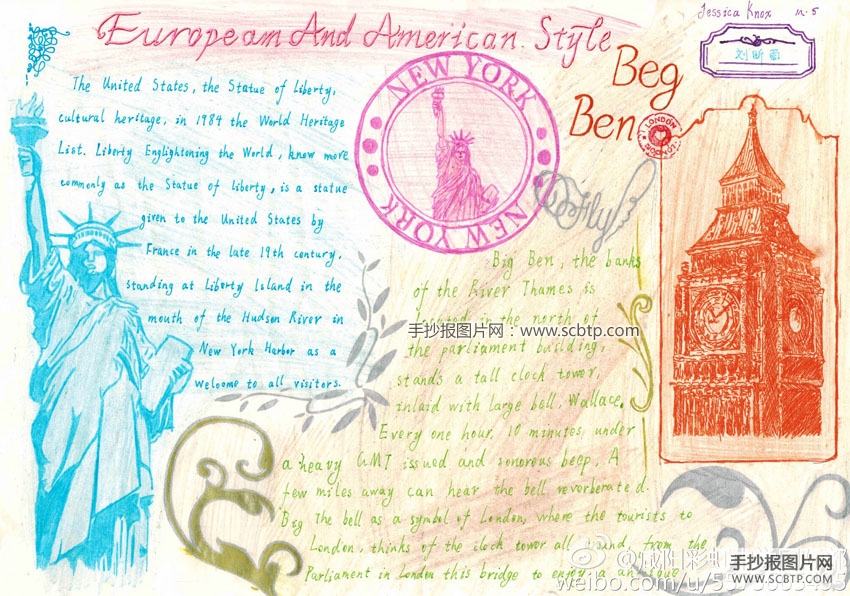 Jessica Knox m.5
European And American Style
Beg
Ben
The United States, the Statue of Liberty,
cultural heritage, in 1984 the World Heritage
List. Liberty Englightening the World, know more
commonly as the Statue of Liberty, is a statue
given to the United States by
France in the late 19th century,
standing at Liberty Island in the
mouth of the Hudson River in
New York Harbor as a
welcome to all visitors.
NEW YORK
NEW YORK
LONDON
LONDON
Fly
Big Ben, the banks
of the River Thames is
located in the north of
the parliament building,
stands a tall clock tower,
inlaid with large bell. Wallace.
Every one hour, 10 minutes under
a heavy GMT issued and sonorous beep. A
few miles away can hear the bell reverberated.
Big The bell as a symbol of London, where the tourists to
London, thinks of the clock tower all around, from the
Parliament in London this bridge to enjoy a an
手抄报图片网：www.scbtp.com
手抄报图片网
WWW.SCBTP.COM
weibo.com/u/